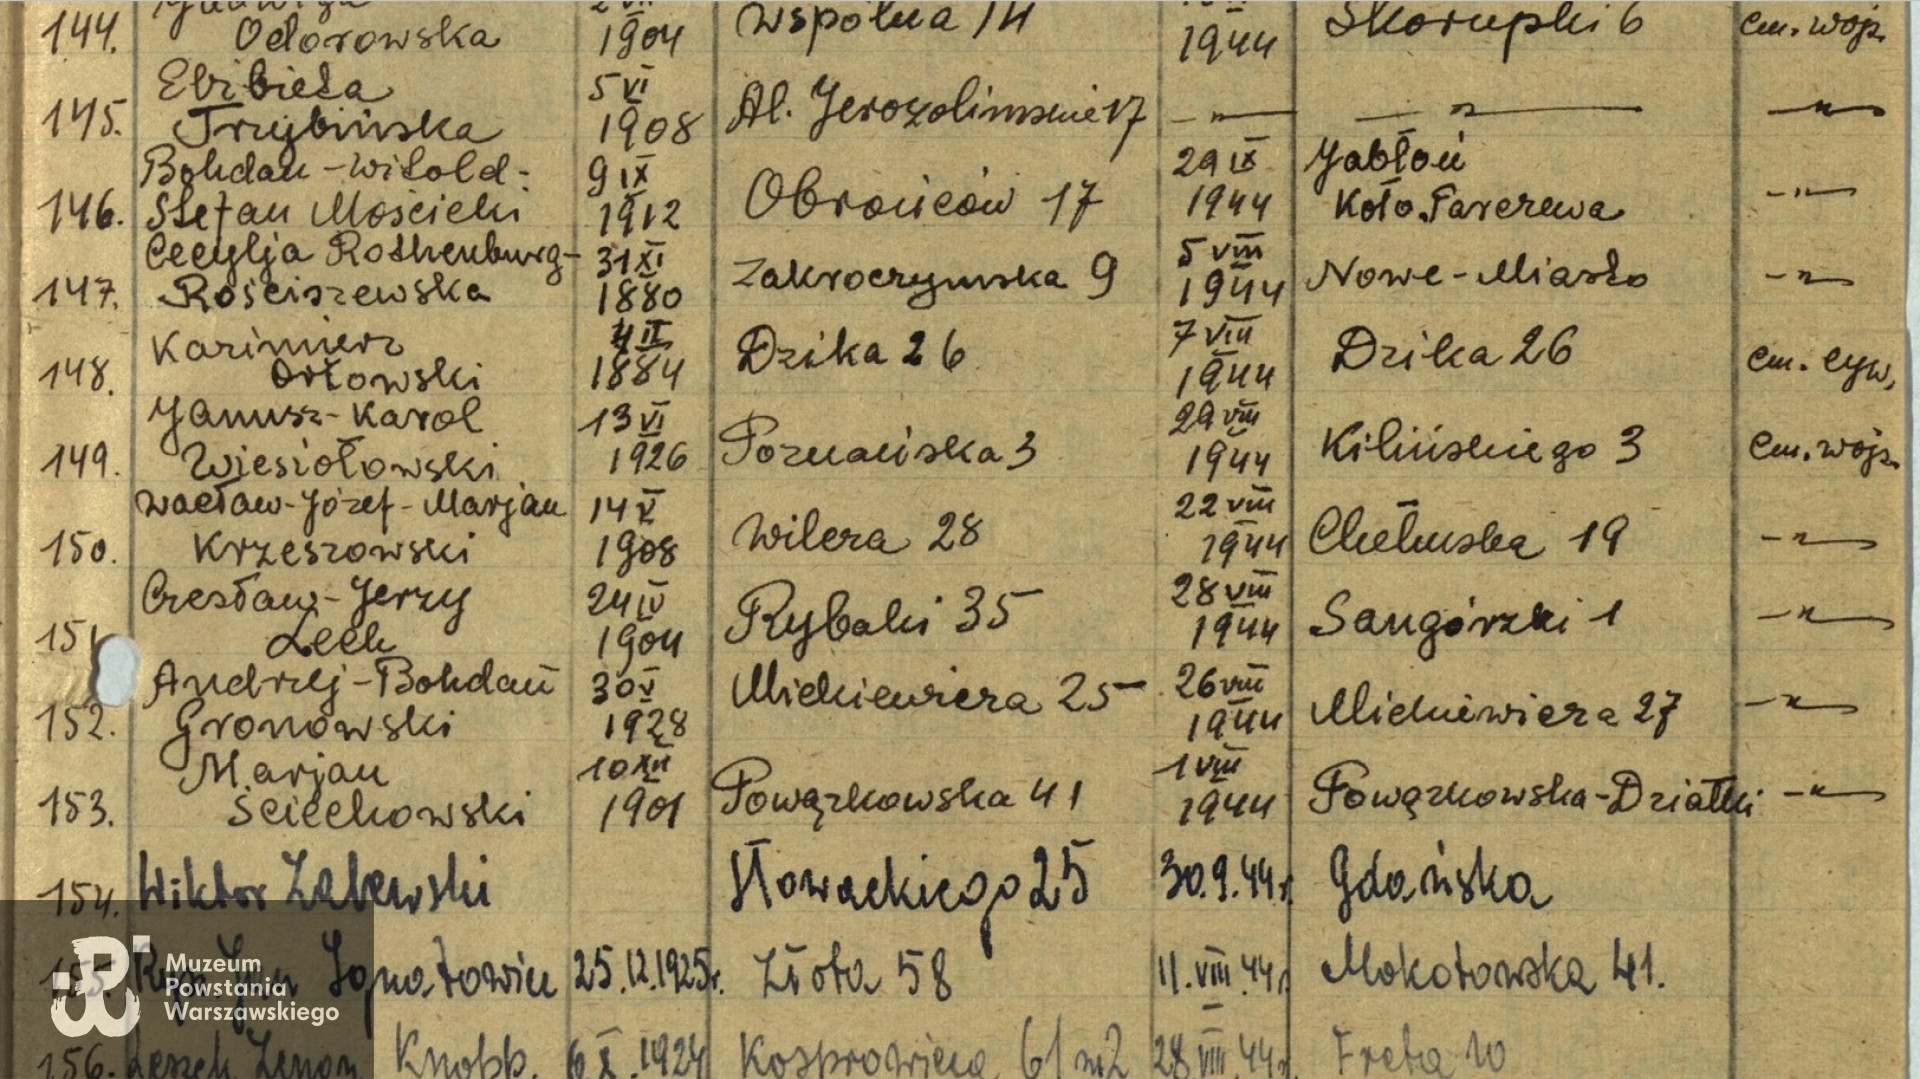 144. Odorowska 1904 Wspólna 14 1944 Skorupki 6 cm. woj.
Elżbieta 5 VI
145. Trzybińska 1908 Al. Jerozolimskie 17 — " — — " — — " —
Bohdan-Witold- 9 IX 29 IX Jabłoń
146. Stefan Mościcki 1912 Obrońców 17 1944 Koło Parczewa — " —
Cecylja Rothenburg- 31 XI 5 VIII
147. Rościszewska 1880 Zakroczymska 9 1944 Nowe-Miasto — " —
Kazimierz 4 II 7 VIII
148. Orłowski 1884 Dzika 26 1944 Dzika 26 cm. cyw.
Janusz-Karol 13 VI 29 VIII
149. Wiesiołowski 1926 Poznańska 3 1944 Kilińskiego 3 cm. woj.
Wacław-Józef-Marjan 14 V 22 VIII
150. Krzeszowski 1908 Wilcza 28 1944 Chełmska 19 — " —
Czesław-Jerzy 24 IV 28 VIII
151. Lech 1904 Rybaki 35 1944 Sanguszki 1 — " —
Andrzej-Bohdan 30 V 26 VIII
152. Gronowski 1928 Mickiewicza 25 1944 Mickiewicza 27 — " —
Marjan 10 XII 1 VIII
153. Ściechowski 1901 Powązkowska 41 1944 Powązkowska-Działki — " —
154. Wiktor Zalewski Słowackiego 25 30.9.44 r. Gdańska
155. Jan Ignatowicz 25.12.1925 r. Złota 58 11.VIII.44 r. Mokotowska 41.
156. Leszek Zenon Knobb. 6 X.1924 61 m 2 28 VIII.44 r. Freta 10
Muzeum
Powstania
Warszawskiego